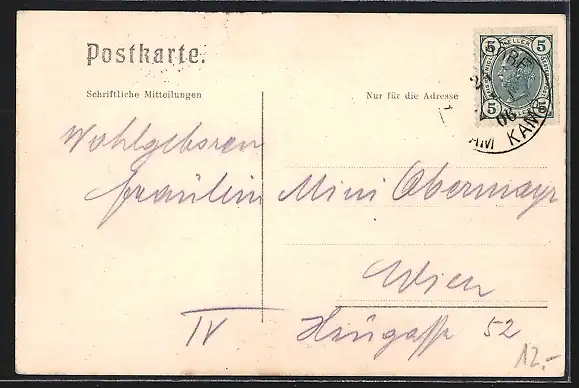 Postkarte.
Schriftliche Mitteilungen
Nur für die Adresse
5 HELLER 5
5 5
06
AM KAMP
Wohlgeboren
Fräulein Mini Obermayr
Wien
IV 52
12.-